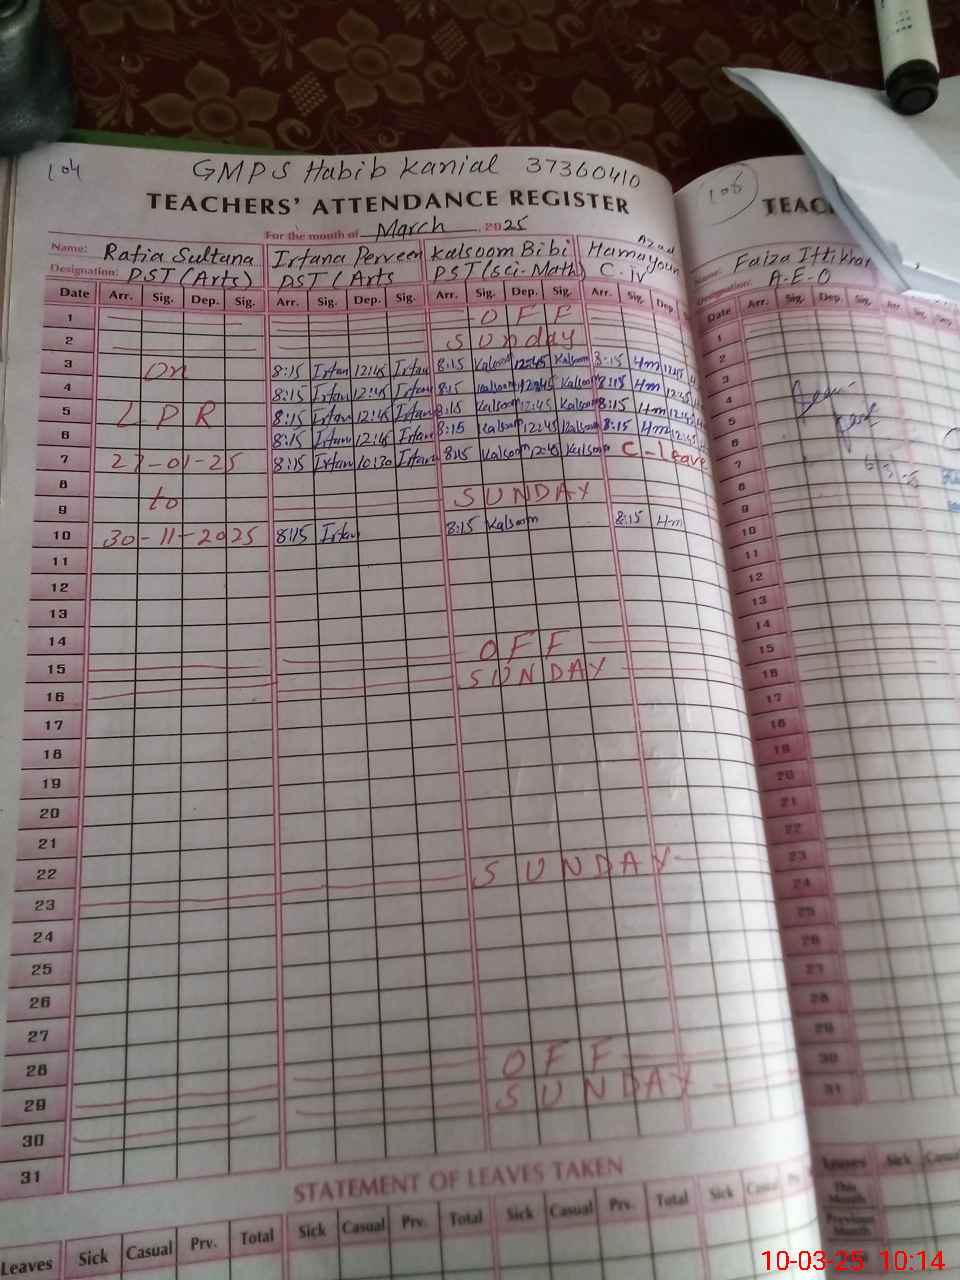 104
GMPS Habib Kanial 37360410
TEACHERS' ATTENDANCE REGISTER
For the month of March, 2025
Name: Rafia Sultana Irfana Perveen Kalsoom Bibi Hamayoun Azad
Designation: PST (Arts) PST (Arts PST (Sci-Math) C-IV
Date Arr. Sig. Dep. Sig. Arr. Sig. Dep. Sig. Arr. Sig. Dep. Sig. Arr. Sig. Dep
1 OFF
2 Sunday
3 On 8:15 Irfan 12:45 Irfan 8:15 Kalsoom 12:45 Kalsoom 8:15 Hm 12:45
4 8:15 Irfan 12:45 Irfan 8:15 Kalsoom 12:45 Kalsoom 8:15 Hm 12:45
5 LPR 8:15 Irfan 12:45 Irfan 8:15 Kalsoom 12:45 Kalsoom 8:15 Hm 12:45
6 8:15 Irfan 12:45 Irfan 8:15 Kalsoom 12:45 Kalsoom 8:15 Hm 12:45
7 27-01-25 8:15 Irfan 10:30 Irfan 8:15 Kalsoom 12:45 Kalsoom C-Leave
8 to
9 SUNDAY
10 30-11-2025 8:15 Irfan 8:15 Kalsoom 8:15 Hm
11
12
13
14
15 OFF
16 SUNDAY
17
18
19
20
21
22
23 SUNDAY
24
25
26
27
28
29 OFF
30 SUNDAY
31
STATEMENT OF LEAVES TAKEN
Leaves Sick Casual Prv. Total Sick Casual Prv. Total Sick Casual Prv. Total Sick Casual
105
TEAC
Name: Faiza Iftikhar
Designation: A-E-O
Date Arr. Sig. Dep. Sig. Arr. Sig. Dep.
1
2
3
4
5
6
7
8
9
10
11
12
13
14
15
16
17
18
19
20
21
22
23
24
25
26
27
28
29
30
31
Leaves Sick Casual
This Month
Previous Month
10-03-25 10:14